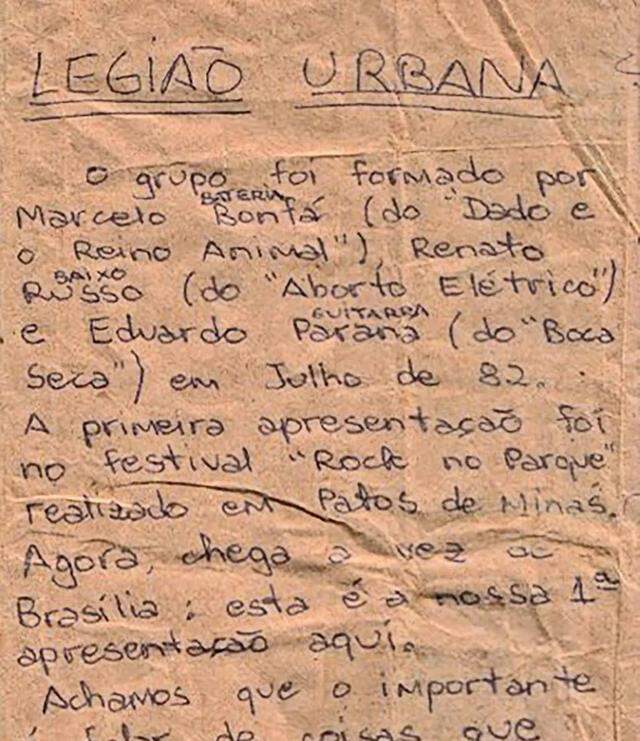 LEGIÃO URBANA
O grupo foi formado por
BATERIA
Marcelo Bonfá (do "Dado e
o Reino Animal"), Renato
BAIXO
Russo (do "Aborto Elétrico")
GUITARRA
e Eduardo Paraná (do "Boca
Seca") em Julho de 82.
A primeira apresentação foi
no festival "Rock no Parque"
realizado em Patos de Minas.
Agora, chega a vez de
Brasília; esta é a nossa 1ª
apresentação aqui.
Achamos que o importante
é falar de coisas que